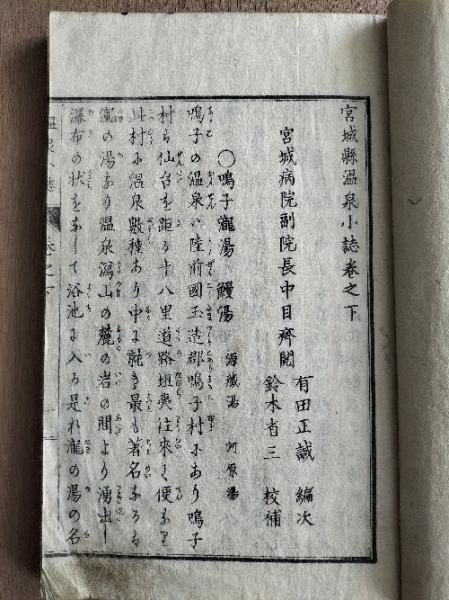 宮城縣温泉小誌卷之下
宮城病院副院長中目齊閲
有田正誠 編次
鈴木省三 校補
○鳴子瀧湯 鰻湯 源藏湯 河原湯
鳴子の温泉ハ陸前國玉造郡鳴子村にあり鳴子
村ハ仙台を距る十八里道路坦夷往來に便なり
此村に温泉數種あり中に就き最も著名なるを
瀧の湯なり温泉潟山の麓の岩の間より湧出し
瀑布の状をなして浴池に入る是れ瀧の湯の名
温泉小誌 卷之下